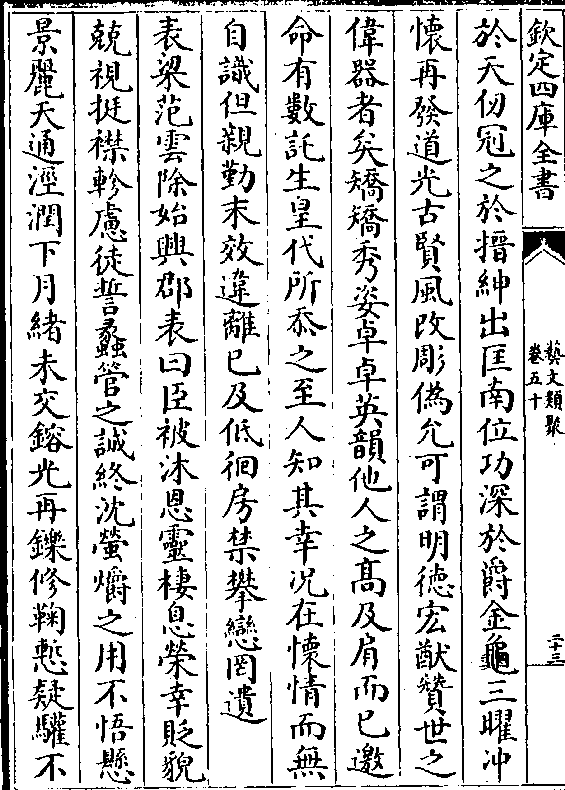 欽定四庫全書
藝文類聚
卷五十
二十三
於天仞冠之於搢紳出匡南位功深於爵金龜三曜冲
懷再發道光古賢風改彫僞允可謂明德宏猷贊世之
偉器者矣矯矯秀姿卓卓英韻他人之髙及肩而已邀
命有數託生皇代所忝之至人知其幸况在懷情而無
自識但親勤末效違離已及低徊房禁攀戀罔遺
表梁范雲除始興郡表曰臣被沐恩靈棲息榮幸貶貌
兢視挺襟軫慮徒誓蠡管之誠終沈螢爝之用不悟懸
景麗天通溼潤下月緒未交鎔光再鑠修鞠慙疑驩不